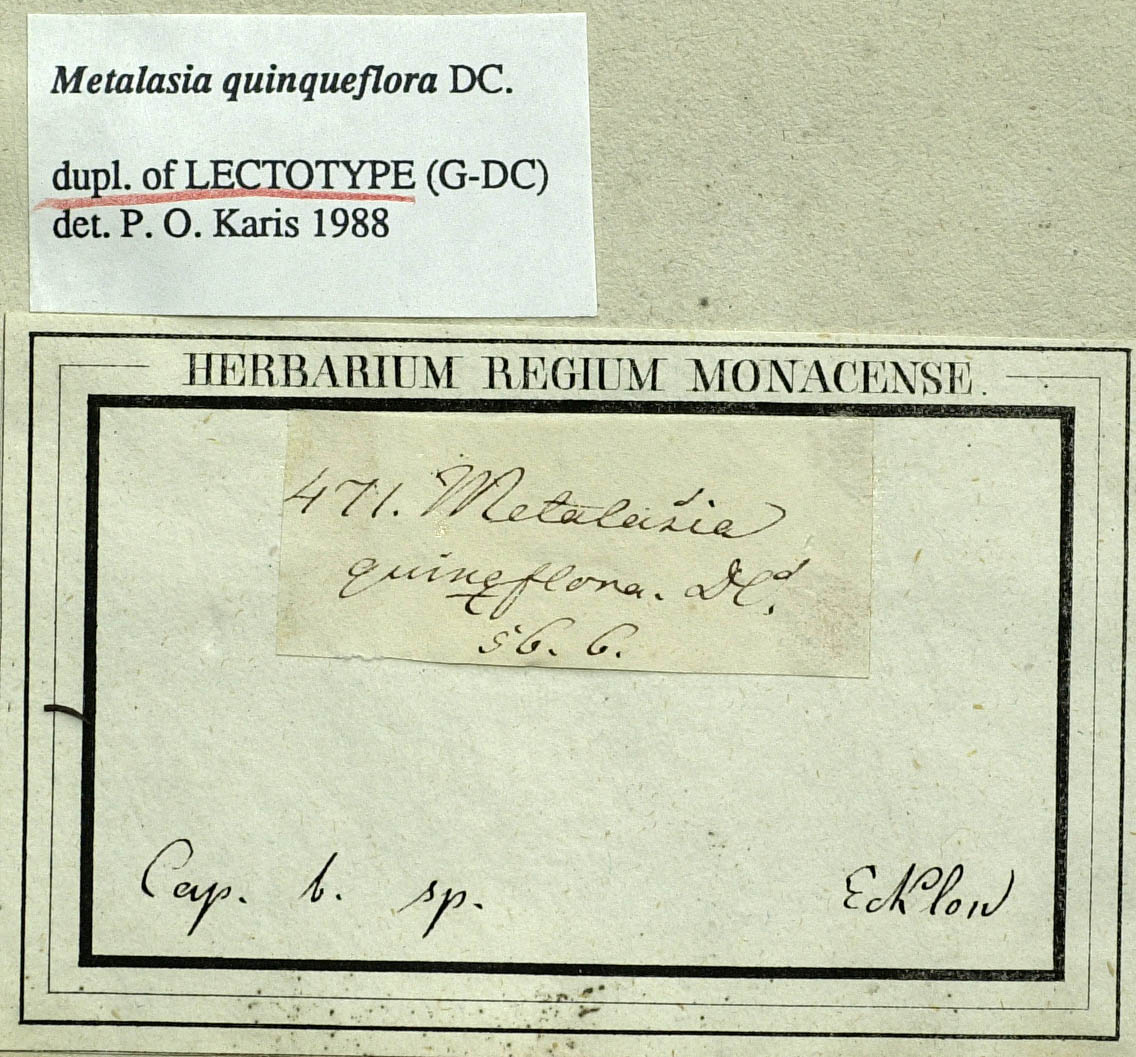 Metalasia quinqueflora DC.
dupl. of LECTOTYPE (G-DC)
det. P. O. Karis 1988
HERBARIUM REGIUM MONACENSE.
471. Metalasia
quinqflora. DC.
56. 6.
Cap. b. sp.
Ecklon